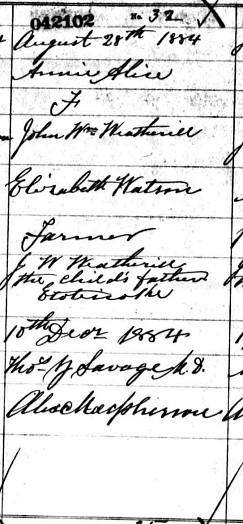 042102 No. 32
August 28th 1884
Annie Alice
F
John Wm Weatherill
Elizabeth Watson
Farmer
J W Weatherill
the child's father
Etobicoke
10th Decr 1884
Thos Y Savage M.D.
Alex Macphinson